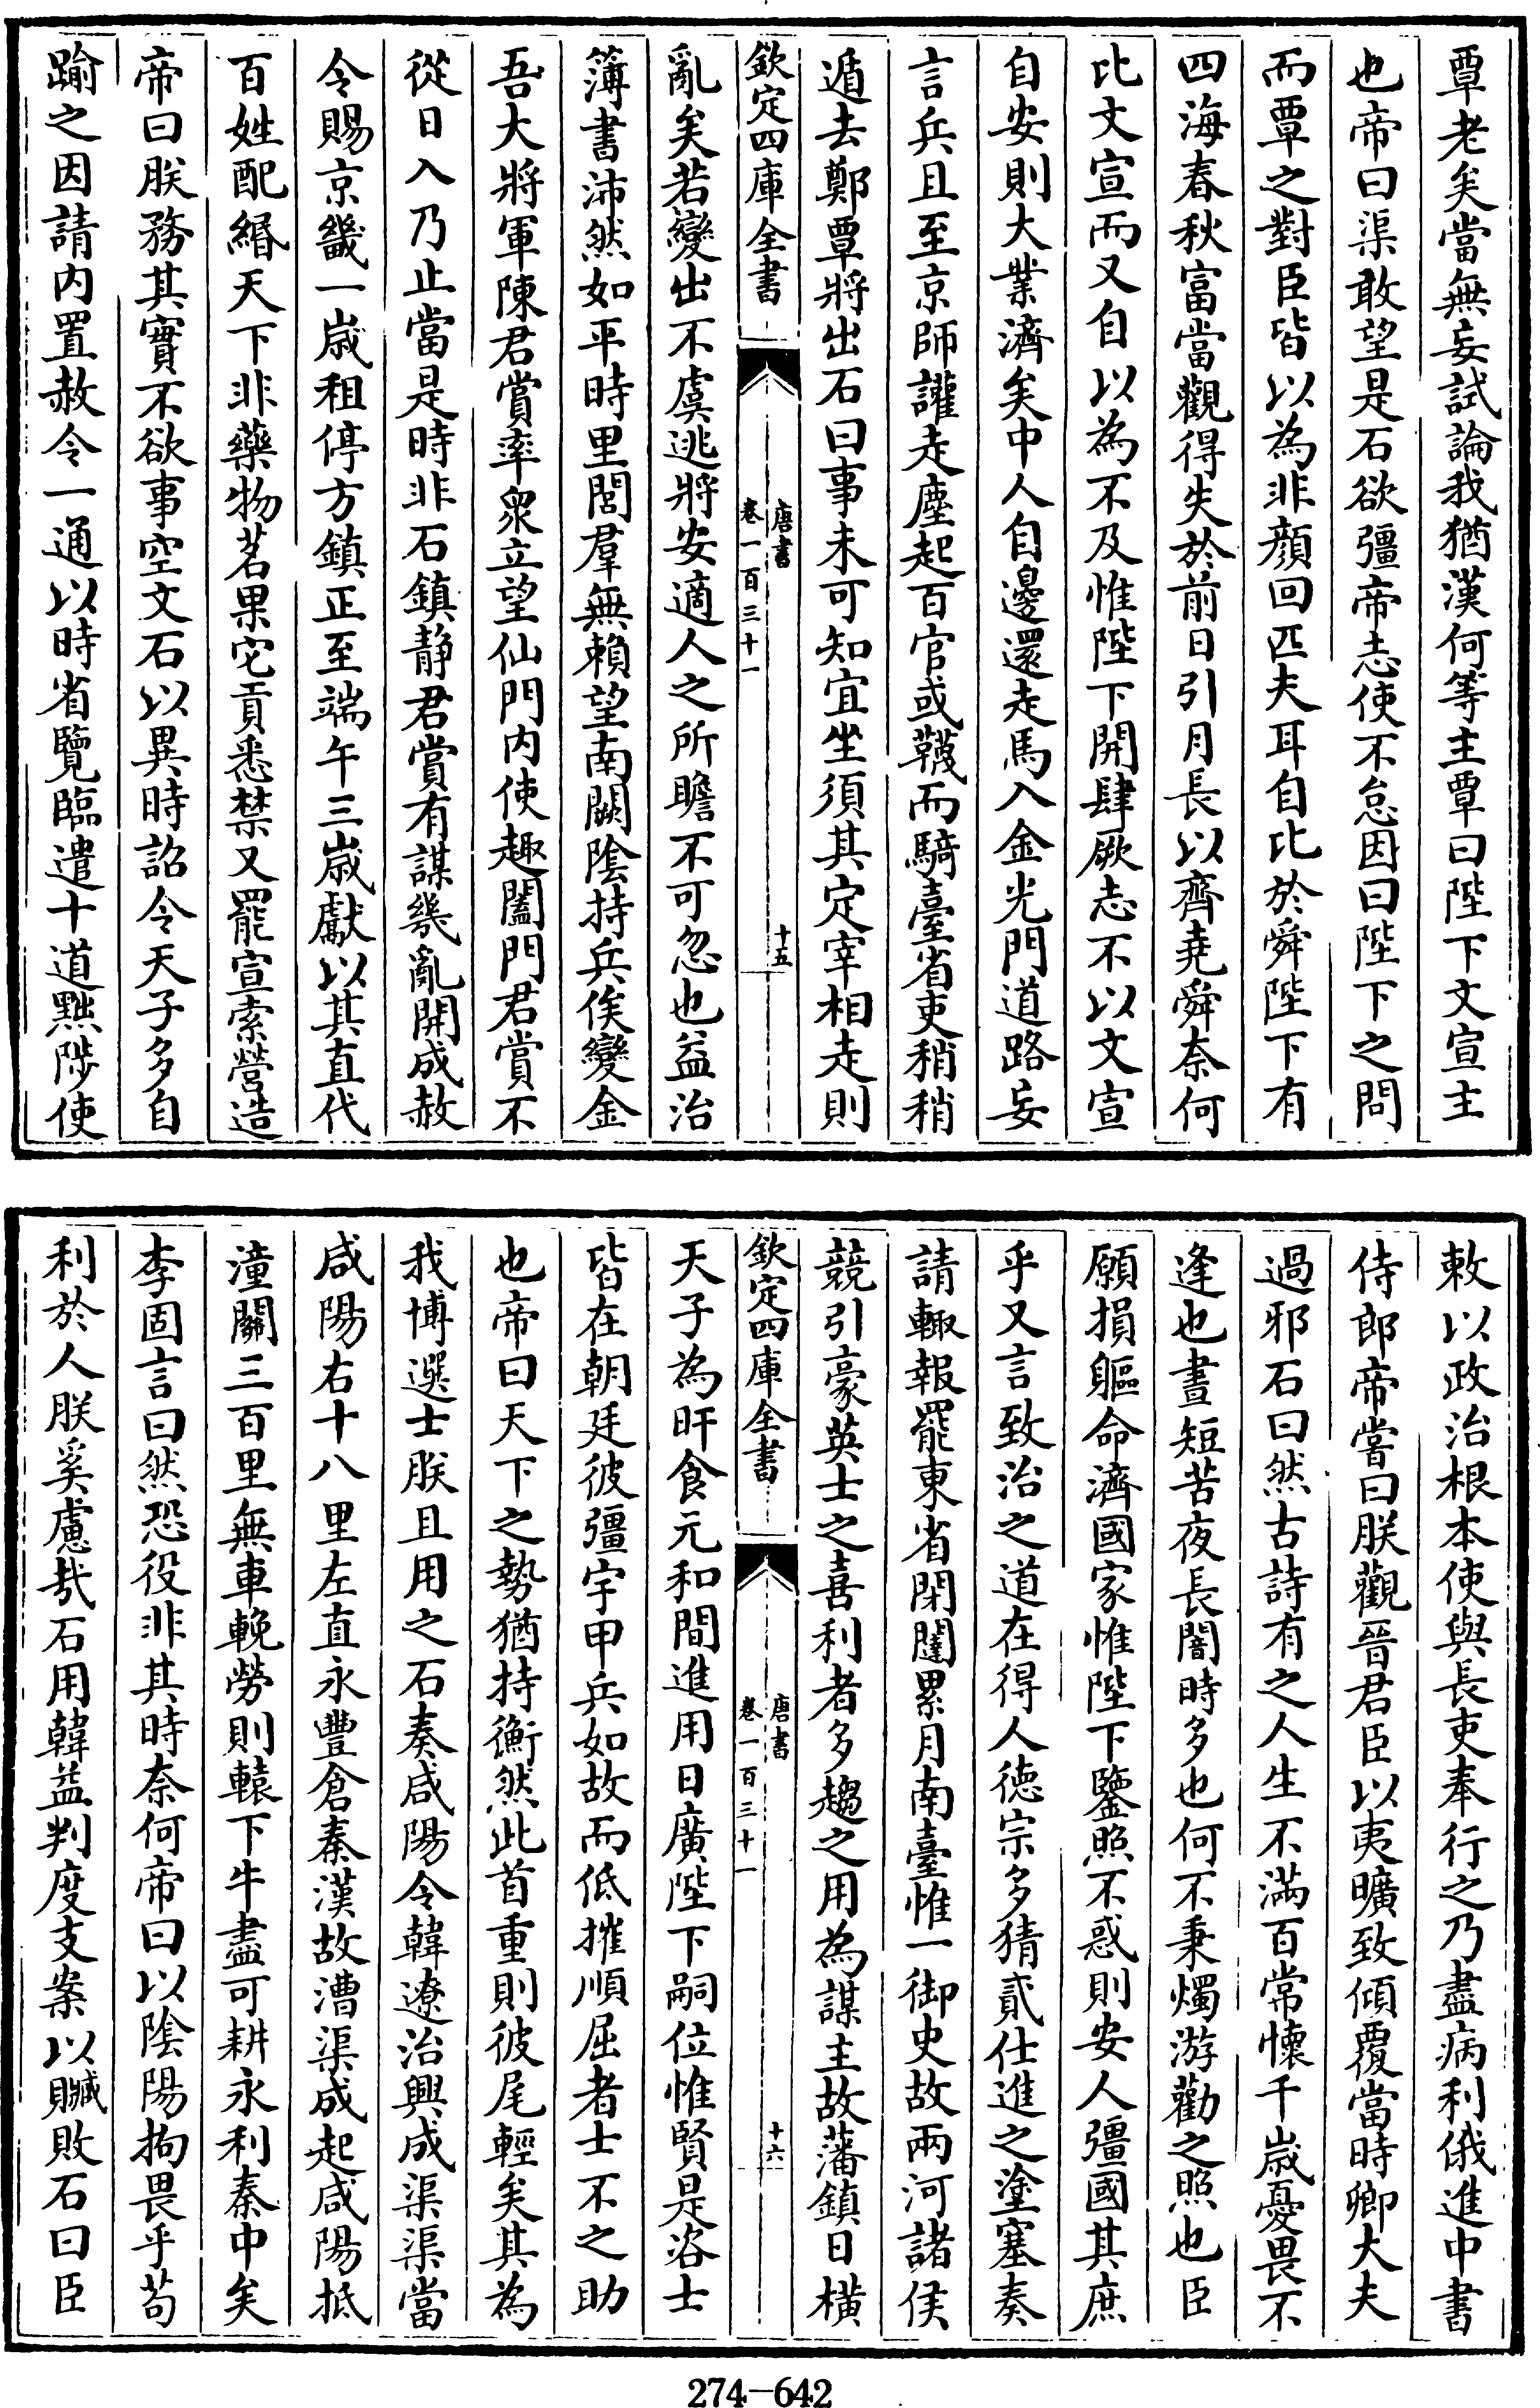 覃老矣當無妄試論我猶漢何等主覃曰陛下文宣主
也帝曰渠敢望是石欲彊帝志使不怠因曰陛下之問
而覃之對臣皆以為非顔回匹夫耳自比於舜陛下有
四海春秋富當觀得失於前日引月長以齊堯舜奈何
比文宣而又自以為不及惟陛下開肆厥志不以文宣
自安則大業濟矣中人自邊還走馬入金光門道路妄
言兵且至京師讙走塵起百官或韈而騎臺省吏稍稍
遁去鄭覃將出石曰事未可知宜坐須其定宰相走則
欽定四庫全書
唐書
卷一百三十一
十五
亂矣若變出不虞逃將安適人之所瞻不可忽也益治
簿書沛然如平時里閭羣無賴望南闕陰持兵俟變金
吾大將軍陳君賞率衆立望仙門内使趣闔門君賞不
從日入乃止當是時非石鎮静君賞有謀幾亂開成赦
令賜京畿一歲租停方鎮正至端午三歲獻以其直代
百姓配緡天下非藥物茗果它貢悉禁又罷宣索營造
帝曰朕務其實不欲事空文石以異時詔令天子多自
踰之因請内置赦令一通以時省覽臨遣十道黜陟使
敕以政治根本使與長吏奉行之乃盡病利俄進中書
侍郎帝嘗曰朕觀晉君臣以夷曠致傾覆當時卿大夫
過邪石曰然古詩有之人生不滿百常懷千歲憂畏不
逢也晝短苦夜長闇時多也何不秉燭游勸之照也臣
願損軀命濟國家惟陛下鑒照不惑則安人彊國其庶
乎又言致治之道在得人德宗多猜貳仕進之塗塞奏
請輙報罷東省閉闥累月南臺惟一御史故兩河諸侯
競引豪英士之喜利者多趨之用為謀主故藩鎮日横
欽定四庫全書
唐書
卷一百三十一
十六
天子為旰食元和間進用日廣陛下嗣位惟賢是咨士
皆在朝廷彼彊宇甲兵如故而低摧順屈者士不之助
也帝曰天下之勢猶持衡然此首重則彼尾輕矣其為
我博選士朕且用之石奏咸陽令韓遼治興成渠渠當
咸陽右十八里左直永豐倉秦漢故漕渠成起咸陽抵
潼關三百里無車輓勞則轅下牛盡可耕永利秦中矣
李固言曰然恐役非其時奈何帝曰以陰陽拘畏乎苟
利於人朕奚慮哉石用韓益判度支案以贓敗石曰臣
274-642